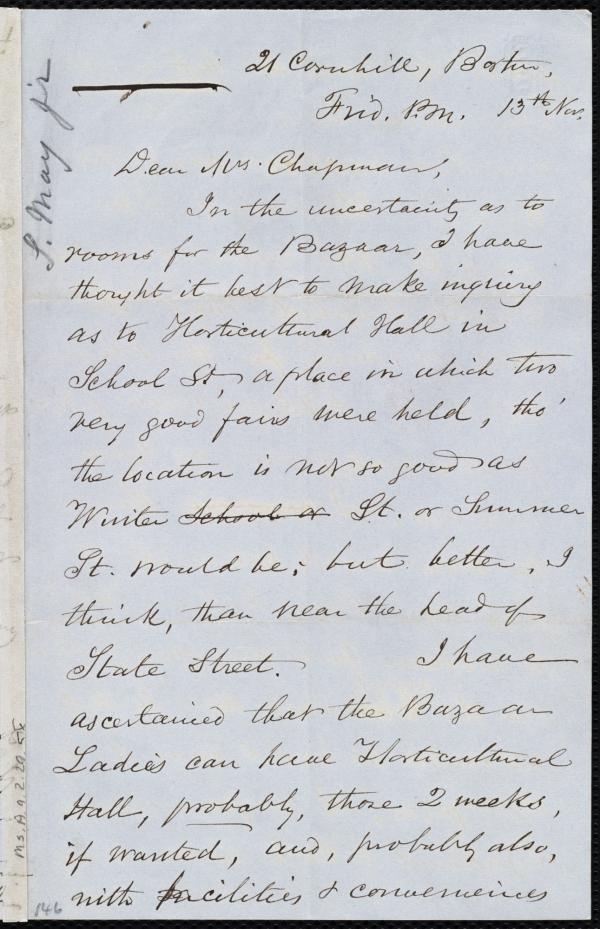 21 Cornhill, Boston,
Frid. P.M. 13th Nov.
S. May Jr
Dear Mrs. Chapman,
In the uncertainty as to
rooms for the Bazaar, I have
thought it best to make inquiry
as to Horticultural Hall in
School St., a place in which two
very good fairs were held, tho'
the location is not so good as
Winter School or St. or Summer
St. would be; but better, I
think, than near the head of
State Street. I have
ascertained that the Bazaar
Ladies can have Horticultural
Hall, probably, those 2 weeks,
if wanted, and, probably also,
with facilities & conveniences
Ms. A.9.2.29.
146